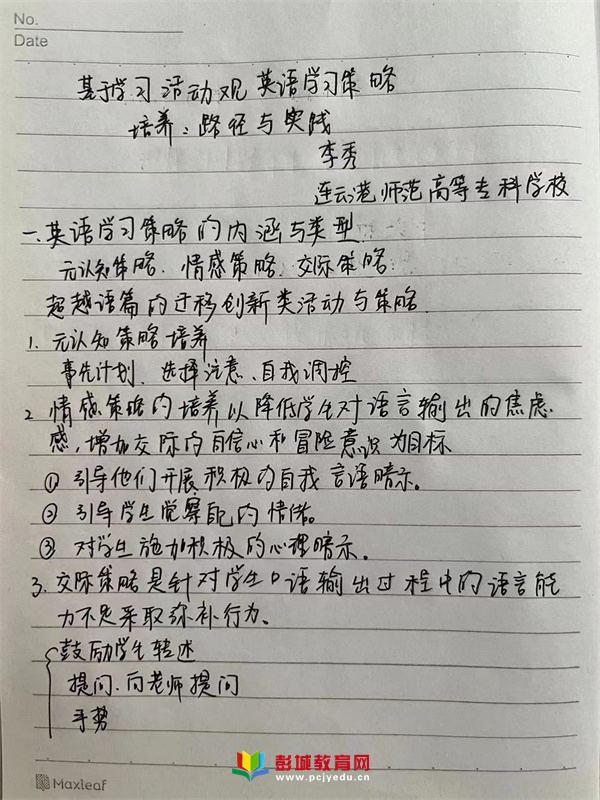 No.
Date
基于学习活动观英语学习策略
培养：路径与实践
李秀
连云港师范高等专科学校
一、英语学习策略的内涵与类型
元认知策略、情感策略、交际策略
超越语篇的迁移创新类活动与策略
1. 元认知策略培养
事先计划、选择注意、自我调控
2. 情感策略的培养以降低学生对语言输出的焦虑
感，增加交际的自信心和冒险意识为目标
① 引导他们开展积极的自我言语暗示。
② 引导学生觉察自己的情绪。
③ 对学生施加积极的心理暗示。
3. 交际策略是针对学生口语输出过程中的语言能
力不足采取弥补行为。
鼓励学生转述
提问、向老师提问
手势
Maxleaf
彭城教育网
www.pcjyedu.cn